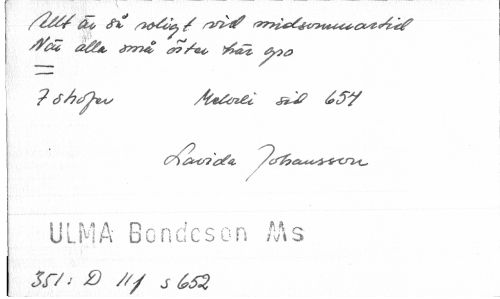 Allt är så roligt vid midsommartid
När alla små örter här gro
7 strofer Melodi sid 654
Lavida Johansson
ULMA Bondeson Ms
351: D 11f s 652